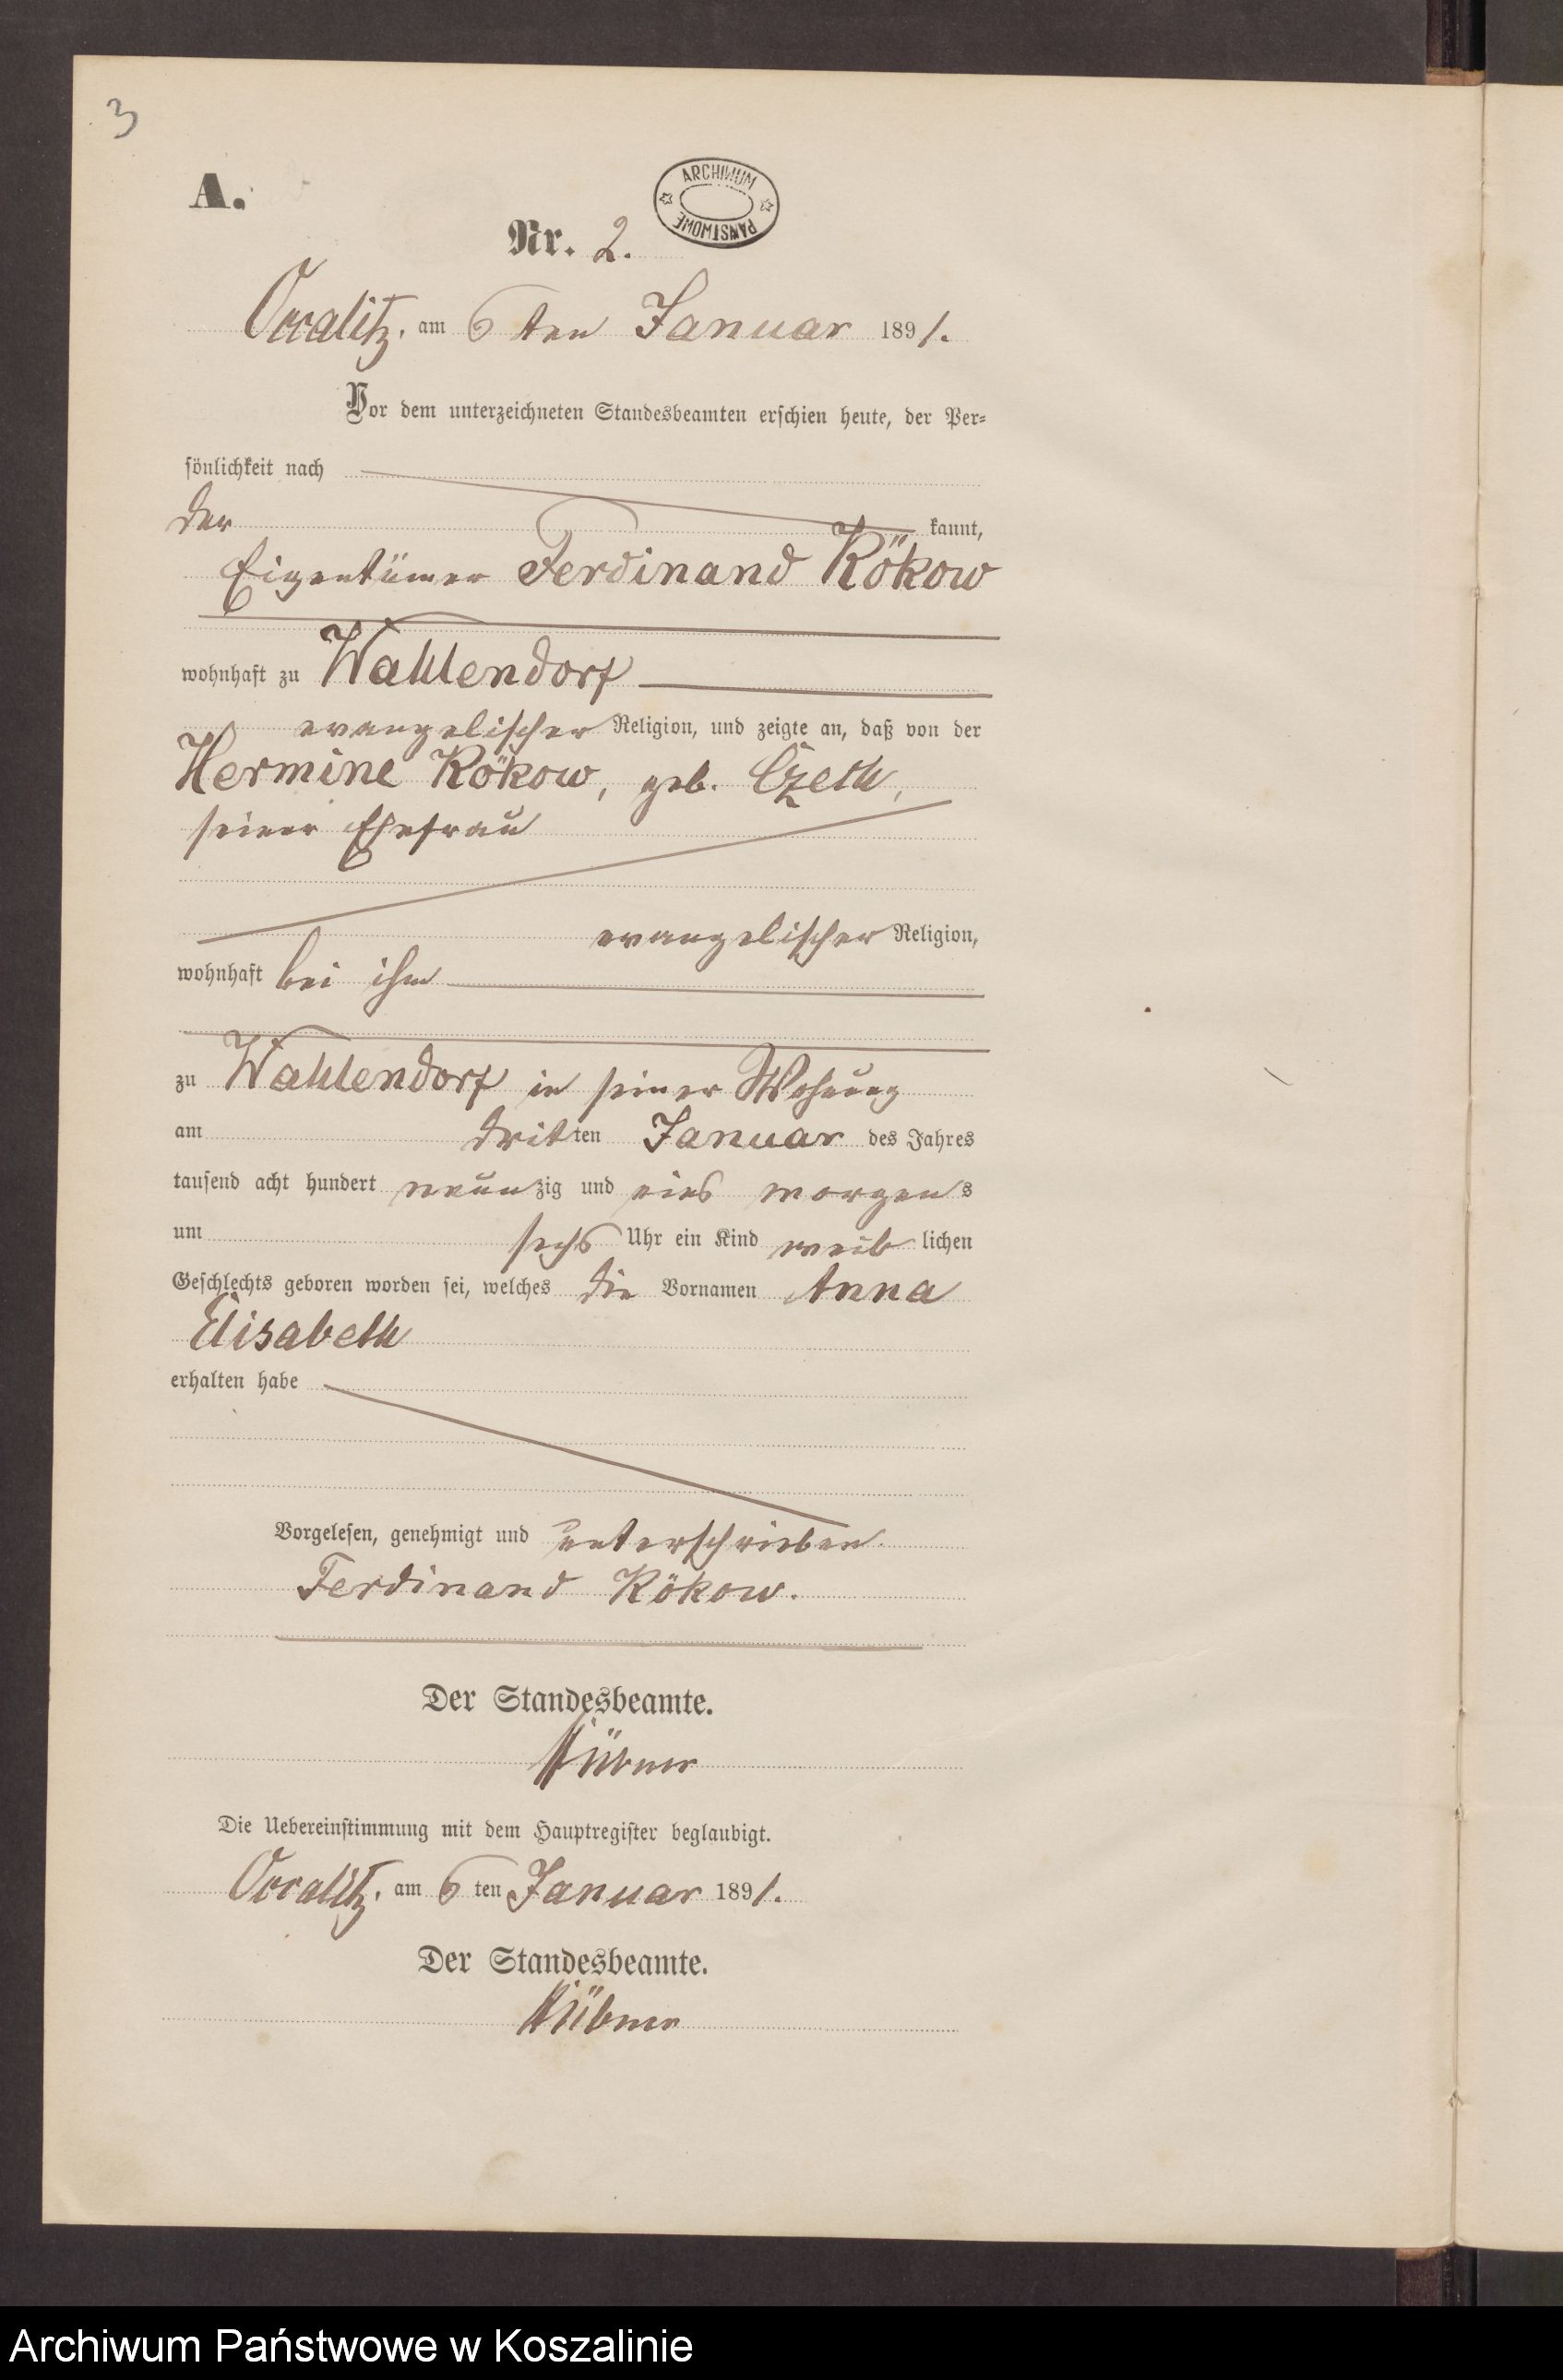 3
A.
ARCHIWUM PAŃSTWOWE
Nr. 2.
Occalitz, am 6 ten Januar 1891.
Vor dem unterzeichneten Standesbeamten erschien heute, der Per-
sönlichkeit nach
der kannt,
Eigentümer Ferdinand Kökow
wohnhaft zu Wahlendorf
evangelischer Religion, und zeigte an, daß von der
Hermine Kökow, geb. Czech,
seiner Ehefrau
evangelischer Religion,
wohnhaft bei ihm
zu Wahlendorf in seiner Wohnung
am dritten Januar des Jahres
tausend acht hundert neunzig und eins morgens
um sechs Uhr ein Kind weiblichen
Geschlechts geboren worden sei, welches die Vornamen Anna
Elisabeth
erhalten habe
Vorgelesen, genehmigt und unterschrieben.
Ferdinand Kökow.
Der Standesbeamte.
Hübner
Die Uebereinstimmung mit dem Hauptregister beglaubigt.
Occalitz, am 6 ten Januar 1891.
Der Standesbeamte.
Hübner
Archiwum Państwowe w Koszalinie